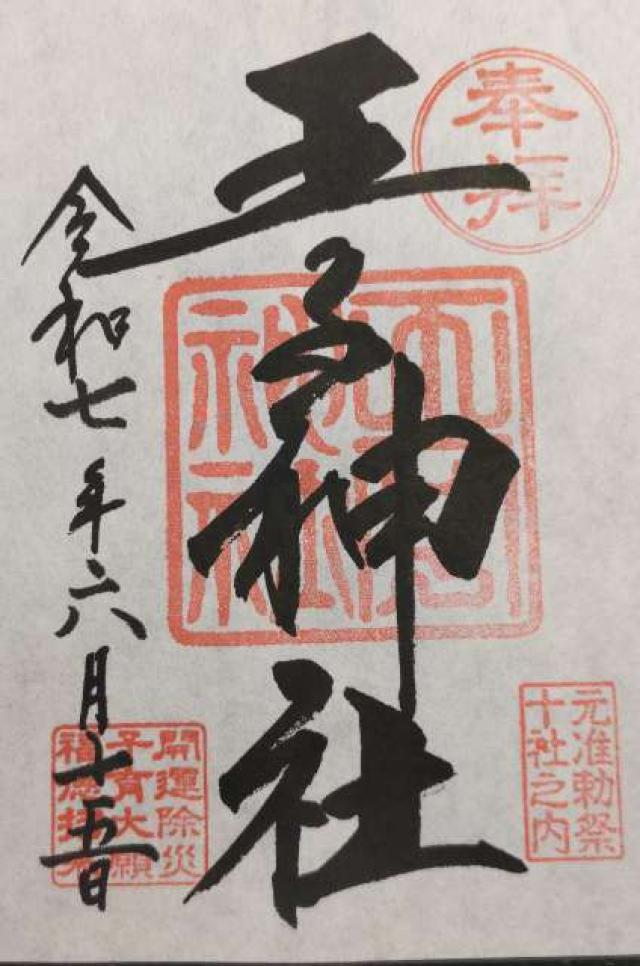 奉拝
王子神社
元准勅祭
十社之内
令和七年六月十五日
開運除災
子育大願
福徳